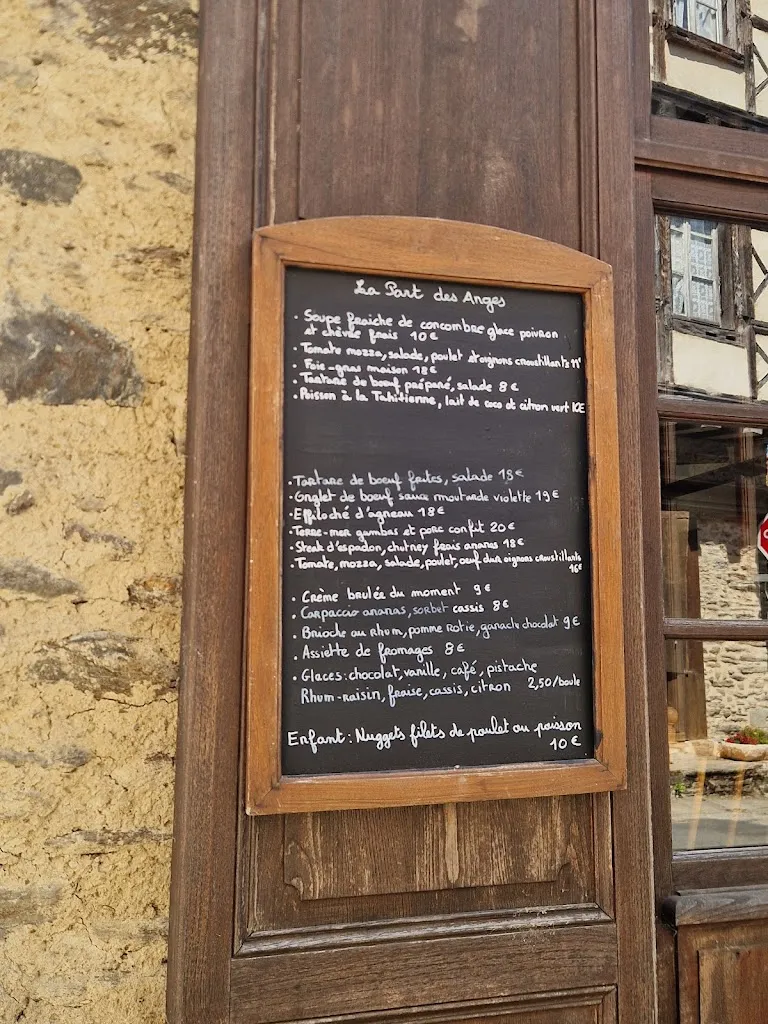 La Part des Anges
• Soupe fraiche de concombre glace poivron
et chèvre frais 10 €
• Tomate mozza, salade, poulet et oignons croustillants 11€
• Foie-gras maison 18 €
• Tartare de boeuf préparé, salade 8 €
• Poisson à la Tahitienne, lait de coco et citron vert 10€
• Tartare de boeuf frites, salade 18 €
• Onglet de boeuf sauce moutarde violette 19 €
• Effiloché d'agneau 18 €
• Terre-mer gambas et porc confit 20 €
• Steak d'espadon, chutney frais ananas 18 €
• Tomate, mozza, salade, poulet, oeuf dur oignons croustillants
16€
• Crème brulée du moment 9 €
• Carpaccio ananas, sorbet cassis 8 €
• Brioche au Rhum, pomme rotie, ganache chocolat 9 €
• Assiette de fromages 8 €
• Glaces: chocolat, vanille, café, pistache
Rhum-raisin, fraise, cassis, citron 2,50/boule
Enfant: Nuggets filets de poulet ou poisson
10 €